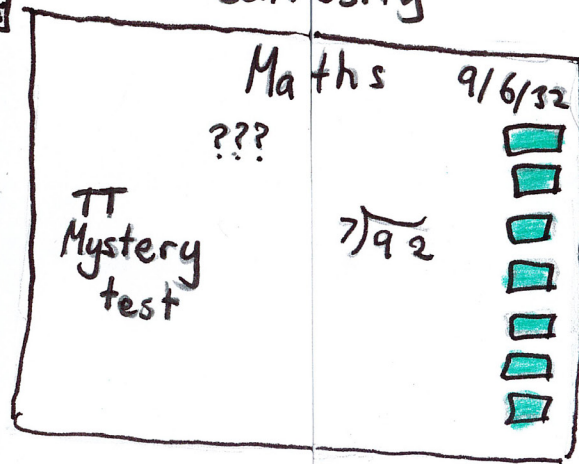 Maths 9/6/32
???
π
Mystery
test
7)92